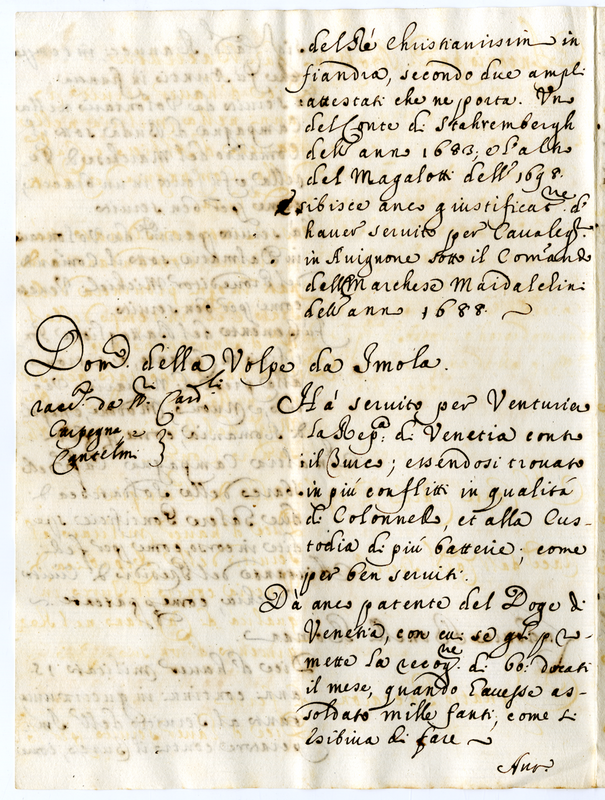 del Ré Christianissim in
fiandra, secondo due ampli
attestati che ne porta. Uno
del Conte di Stahrembergh
dell' anno 1683; e l'altro
del Magalotti dell' 1698.
Esibisce anco giustificatne. di
haver servito per Cavalegr.
in Avignone sotto il Comando
dell Marchese Maidalchini
dell' anno 1688.
Domo. della Volpe da Imola.
racc. da Sri. Cardli.
Carpegna e
Cantelmi
Há servito per Venturier
la Repa. di Venetia contro
il Turco; essendosi trovato
in piú conflitti in qualitá
di Colonnello, et alla Cus-
todia di piú batterie, come
per ben serviti.
Dà anco patente del Doge di
Venetia, con cui se gli pro-
mette la recogne. di 60: ducati
il mese, quando havesse as-
soldato mille fanti, come si
esibiva di fare
Ant.